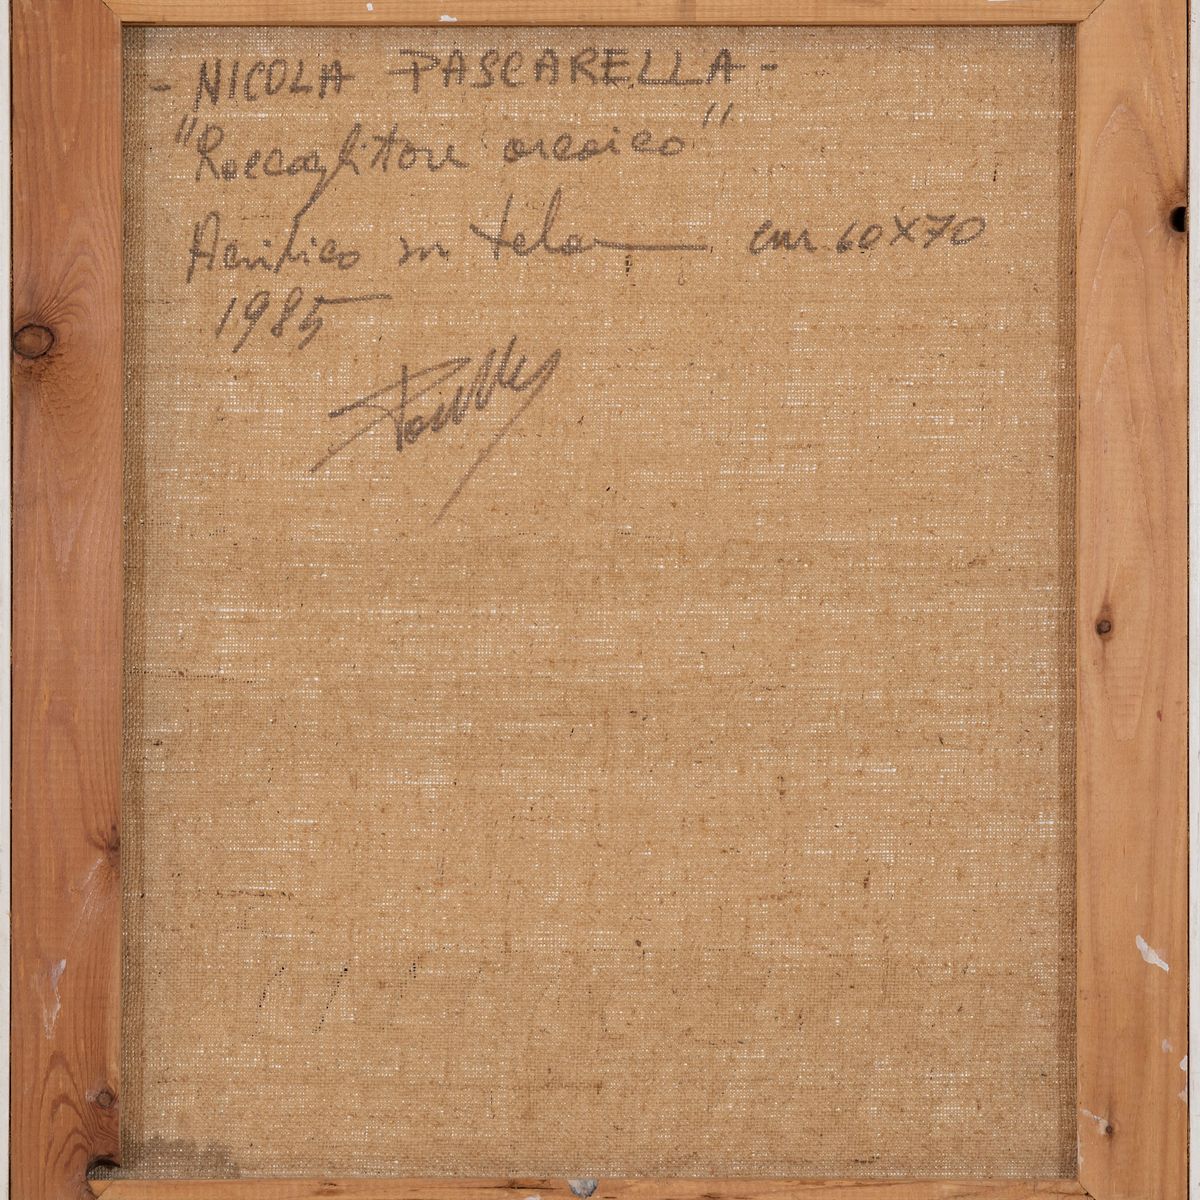 - NICOLA PASCARELLA -
"Raccoglitore arcaico"
Acrilico su tela cm. 60X70
1985